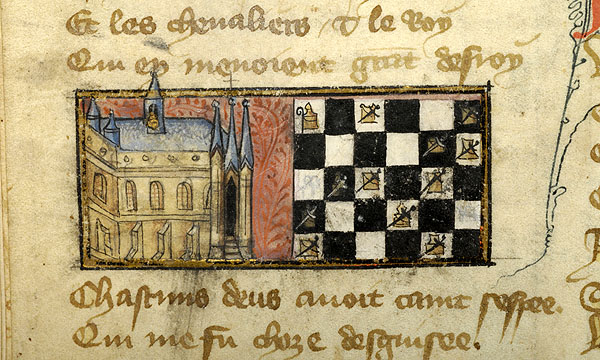 Et les chevaliers & le Roy
Qui en menoient grāt desroy
Chascuns deus auoit tant
Qui me fu choze desguisee.